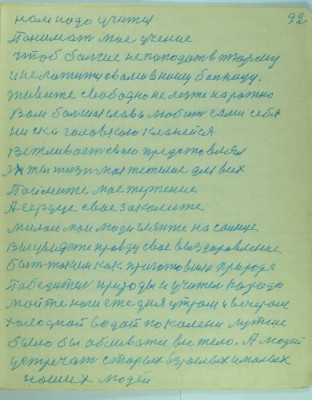 92
нам надо учится
Понимат мое учение
чтоб болше непоподат в тюрму
и нележит овали в нишу болницу.
Живите свободно не лезте на рожно
Вам болшая слава любит сами себя
Низко головкою кланейся
Вежливост свою представляй
жизн моя тежолая для всех
Поймите мое терпение
А сердце свое закалите
милои мои люди глянте на солнце
Вы увидете правду свое выздоровление
быт таким как приготовила природа
Победител природы и учител народа
мойте ноги ежедня утром и вечером
холодной водой по колени лутше
было бы обмывати все тело. А людей
устречат старых взрослых и малых
наших людей